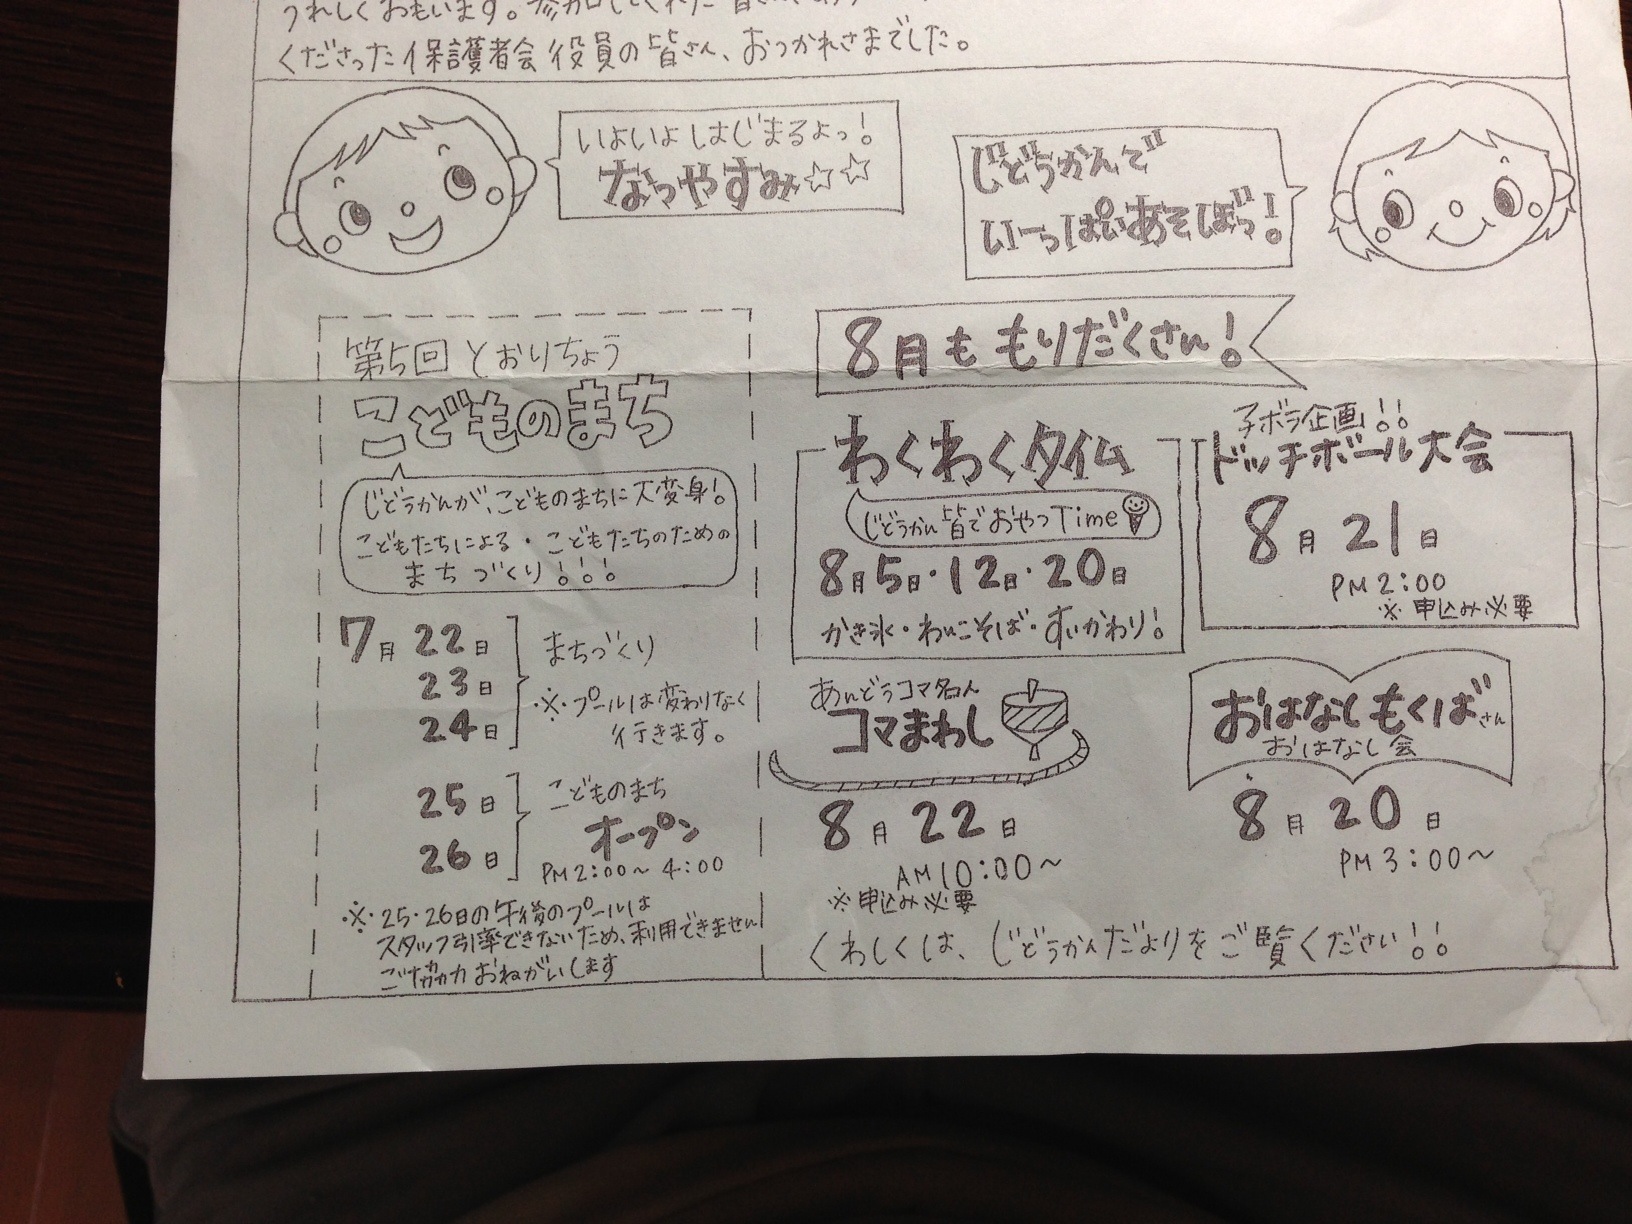 うれしくおもいます。参加してくれた皆さん、
くださった保護者会役員の皆さん、おつかれさまでした。
いよいよはじまるよっ!
なつやすみ☆☆
じどうかんで
いーっぱいあそぼっ!
第5回 とおりちょう
こどものまち
じどうかんが、こどものまちに大変身!
こどもたちによる・こどもたちのための
まちづくり!!!
7月22日
23日
24日
まちづくり
※プールは変わりなく
行きます。
25日
26日
こどものまち
オープン
PM2:00〜4:00
※25・26日の午後のプールは
スタッフ引率できないため、利用できません
ご協力おねがいします
8月ももりだくさん!
わくわくタイム
じどうかん皆でおやつTime
8月5日・12日・20日
かき氷・わんこそば・すいかわり!
子ボラ企画!!
ドッチボール大会
8月21日
PM2:00
※申込み必要
あんどうコマ名人
コマまわし
8月22日
AM10:00〜
※申込み必要
おはなしもくばさん
おはなし会
8月20日
PM3:00〜
くわしくは、じどうかんだよりをご覧ください!!